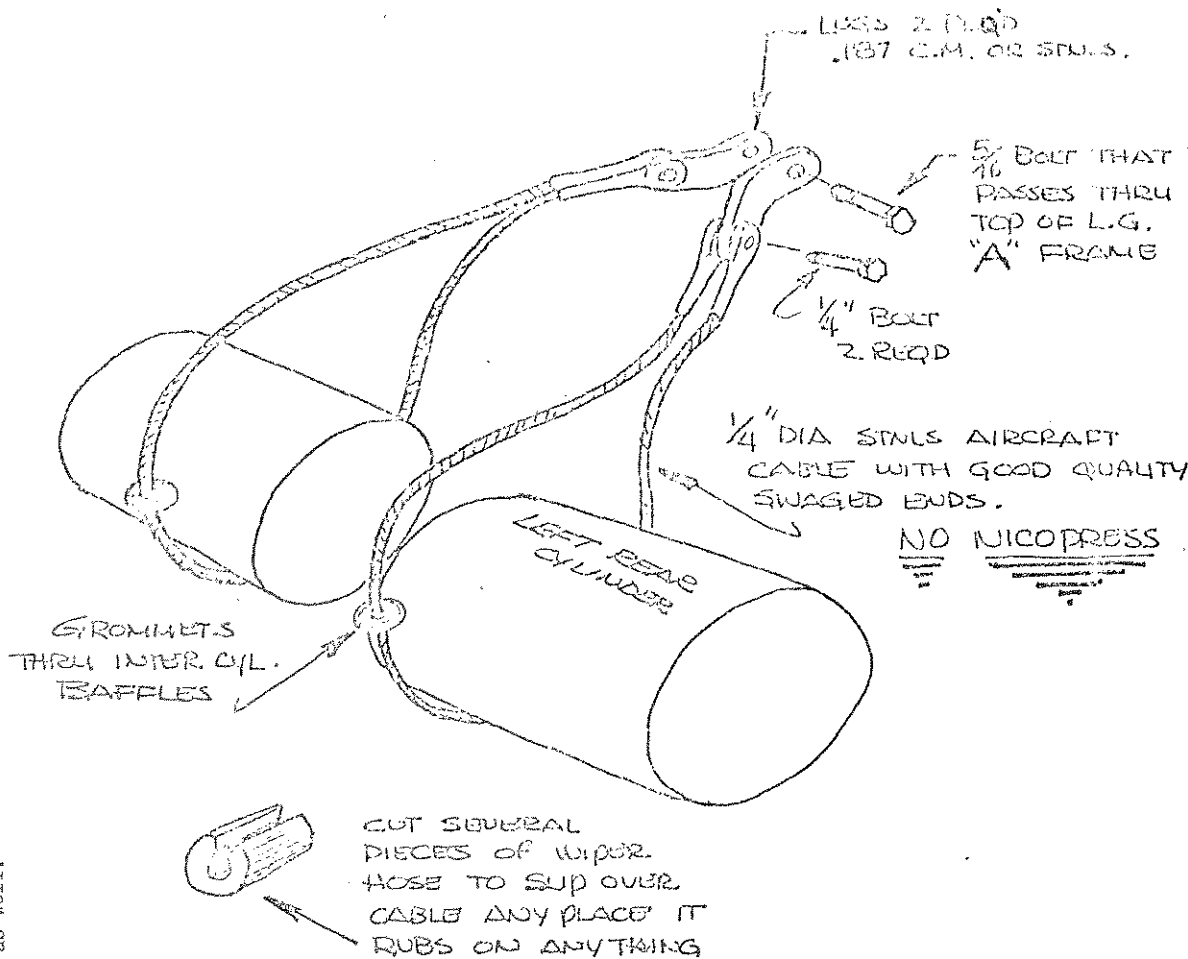 LUGS 2 REQD
.187 C.M. OR STNLS.
5/16 BOLT THAT
PASSES THRU
TOP OF L.G.
"A" FRAME
1/4" BOLT
2 REQD
1/4" DIA STNLS AIRCRAFT
CABLE WITH GOOD QUALITY
SWAGED ENDS.
NO NICOPRESS
LEFT REAR
CYLINDER
GROMMETS
THRU INTER CYL.
BAFFLES
CUT SEVERAL
PIECES OF WIPER
HOSE TO SLIP OVER
CABLE ANY PLACE IT
RUBS ON ANYTHING